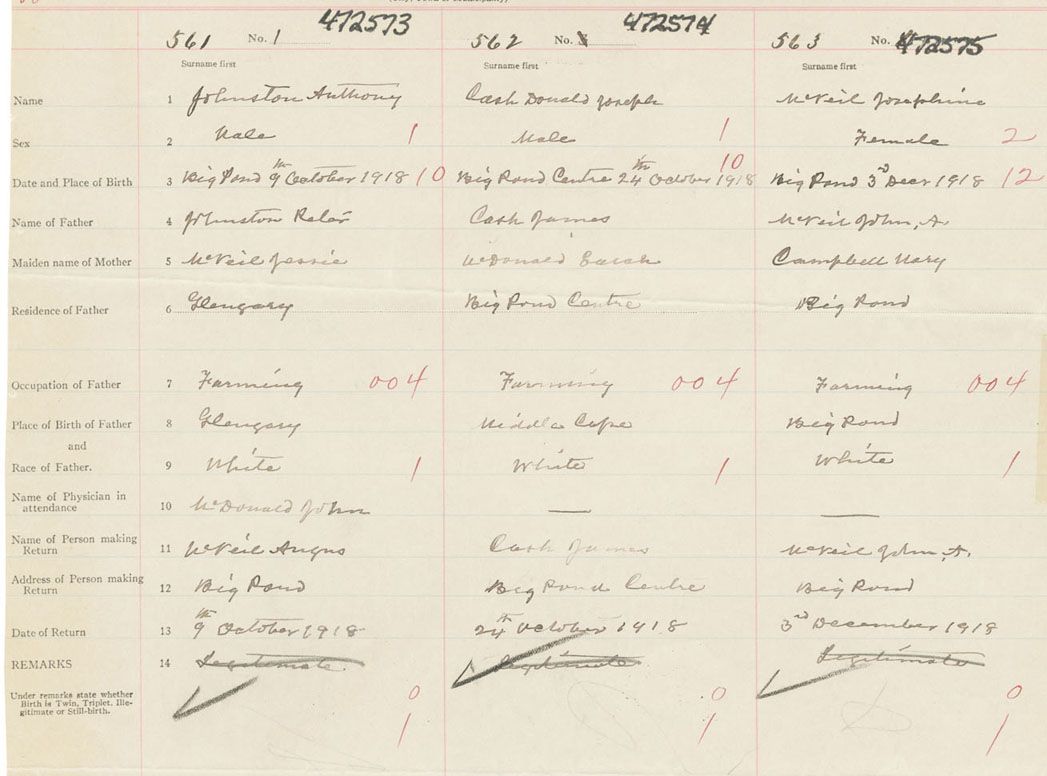 561 No. 1 472573 562 No. 472574 563 No. 472575
Surname first Surname first Surname first
Name 1 Johnston Anthony Cash Donald Joseph McNeil Josephine
Sex 2 Male 1 Male 1 Female 2
Date and Place of Birth 3 Big Pond 9th October 1918 10 Big Pond Centre 24th October 1918 10 Big Pond 3rd Decr 1918 12
Name of Father 4 Johnston Cash James McNeil John, A.
Maiden name of Mother 5 McNeil Jessie McDonald Sarah Campbell Mary
Residence of Father 6 Glengary Big Pond Centre Big Pond
Occupation of Father 7 Farming 004 Farming 004 Farming 004
Place of Birth of Father 8 Glengary Middle Cape Big Pond
and
Race of Father. 9 White 1 White 1 White 1
Name of Physician in
attendance 10 McDonald John — —
Name of Person making
Return 11 McNeil Angus Cash James McNeil John, A.
Address of Person making
Return 12 Big Pond Big Pond Centre Big Pond
Date of Return 13 9th October 1918 24th October 1918 3rd December 1918
REMARKS 14 Legitimate Legitimate Legitimate
Under remarks state whether
Birth is Twin, Triplet, Ille-
gitimate or Still-birth.
0 0 0
1 1 1